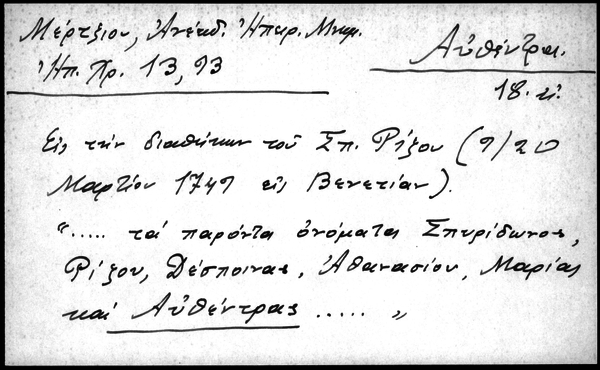 Μέρτζιου, Ἀνέκδ. Ἠπειρ. Μνημ.
Ἠπ. Χρ. 13, 93
Αὐθέντρα.
18. αἰ.
Εἰς τὴν διαθήκην τοῦ Σπ. Ρίζου (9/20
Μαρτίου 1749 εἰς Βενετίαν).
"..... τά παρόντα ὀνόματα Σπυρίδωνος,
Ρίζου, Δέσποινας, Ἀθανασίου, Μαρίας
καί Αὐθέντρας ..... „